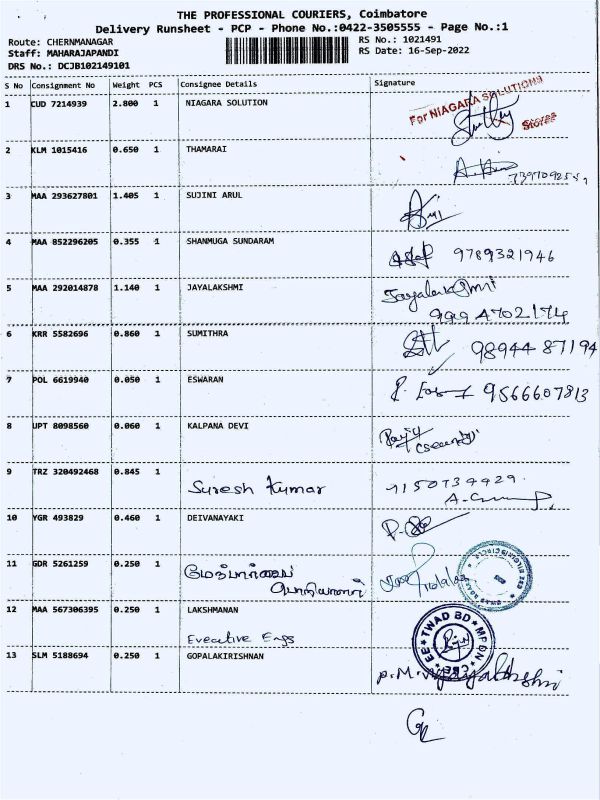 THE PROFESSIONAL COURIERS, Coimbatore
Delivery Runsheet - PCP - Phone No.:0422-3505555 - Page No.:1
Route: CHERNMANAGAR RS No.: 1021491
Staff: MAHARAJAPANDI RS Date: 16-Sep-2022
DRS No.: DCJB102149101
S No Consignment No Weight PCS Consignee Details Signature
1 CUD 7214939 2.800 1 NIAGARA SOLUTION For NIAGARA SOLUTIONS
2 KLM 1015416 0.650 1 THAMARAI
3 MAA 293627801 1.405 1 SUJINI ARUL
4 MAA 852296205 0.355 1 SHANMUGA SUNDARAM 9789321946
5 MAA 292014878 1.140 1 JAYALAKSHMI
9994702174
6 KRR 5582696 0.860 1 SUMITHRA 98944 87194
7 POL 6619940 0.050 1 ESWARAN 9566607813
8 UPT 8098560 0.060 1 KALPANA DEVI
9 TRZ 320492468 0.845 1
Suresh Kumar
10 YGR 493829 0.460 1 DEIVANAYAKI
11 GDR 5261259 0.250 1
12 MAA 567306395 0.250 1 LAKSHMANAN EE TWAD BD MP DN CBE
13 SLM 5188694 0.250 1 GOPALAKIRISHNAN